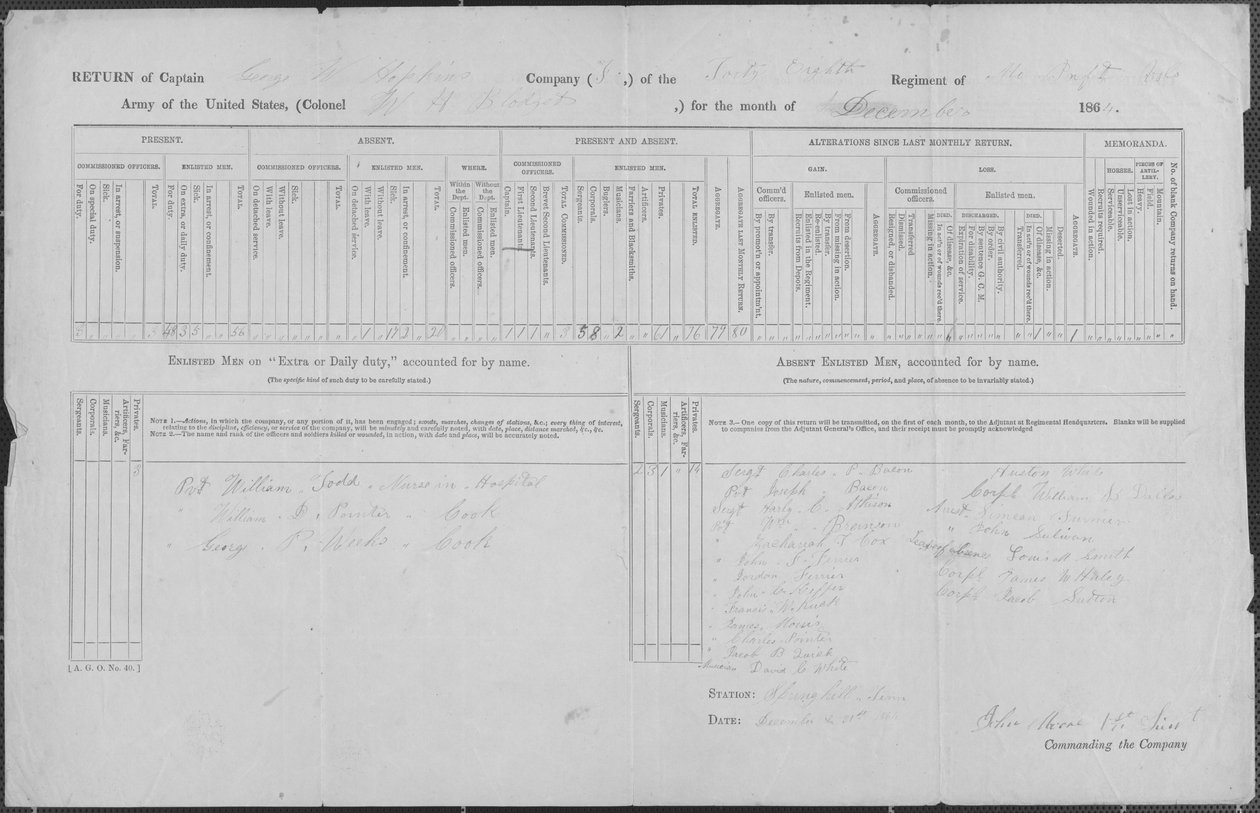 RETURN of Captain George W Hopkins Company (I,) of the Forty Eighth Regiment of Mo Inft Vols
Army of the United States, (Colonel W H Blodget ,) for the month of December 1864.
PRESENT. ABSENT. PRESENT AND ABSENT. ALTERATIONS SINCE LAST MONTHLY RETURN. MEMORANDA.
COMMISSIONED OFFICERS. ENLISTED MEN. COMMISSIONED OFFICERS. ENLISTED MEN. WHERE. COMMISSIONED OFFICERS. ENLISTED MEN. AGGREGATE. AGGREGATE LAST MONTHLY RETURN. GAIN. LOSS. HORSES. PIECES OF ARTILLERY. No. of blank Company returns on hand.
Within the Dept. Without the Dept. Comm'd officers. Enlisted men. AGGREGATE. Commissioned officers. Enlisted men. AGGREGATE.
DIED. DISCHARGED. DIED.
For duty. On special duty. Sick. In arrest, or suspension. TOTAL. For duty. On extra, or daily duty. Sick. In arrest, or confinement. TOTAL. On detached service. With leave. Without leave. Sick. TOTAL. On detached service. With leave. Without leave. Sick. In arrest, or confinement. TOTAL. Commissioned officers. Enlisted men. Commissioned officers. Enlisted men. Captain. First Lieutenant. Second Lieutenants. Brevet Second Lieutenants. TOTAL COMMISSIONED. Sergeants. Corporals. Buglers. Musicians. Farriers and Blacksmiths. Artificers. Privates. TOTAL ENLISTED. By promot'n or appointm'nt. By transfer. Recruits from Depots. Enlisted in the Regiment. Re-enlisted. By transfer. From missing in action. From desertion. Resigned, or disbanded. Dismissed. Transferred Missing in action. In act'n or of wounds rec'd there. Of disease, &c. Expiration of service. For disability. By sentence G. C. M. By order. By civil authority. Transferred. In act'n or of wounds rec'd there. Of disease, &c. Missing in action. Deserted. Wounded in action. Recruits required. Serviceable. Unserviceable. Lost in action. Heavy. Field. Mountain.
3 " " " 3 48 3 5 " 56 " " " " " " 1 " 17 2 20 " " " " 1 1 1 " 3 5 8 " 2 " " 61 76 79 80 " " " " " " " " " " " " " " " " " " " " " 1 " " 1 " " " " " " " "
ENLISTED MEN ON "EXTRA OR DAILY DUTY," accounted for by name. ABSENT ENLISTED MEN, accounted for by name.
(The specific kind of such duty to be carefully stated.) (The nature, commencement, period, and place, of absence to be invariably stated.)
Sergeants. Corporals. Musicians. Artificers, Farriers, &c. Privates.
NOTE 1.—Actions, in which the company, or any portion of it, has been engaged; scouts, marches, changes of stations, &c.; every thing of interest,
relating to the discipline, efficiency, or service of the company, will be minutely and carefully noted, with date, place, distance marched, &c., &c.
NOTE 2.—The name and rank of the officers and soldiers killed or wounded, in action, with date and place, will be accurately noted.
3
Pvt William Todd " Nurse in Hospital
" William D. Pointer " Cook
" George P. Weeks " Cook
[A. G. O. No. 40.]
Sergeants. Corporals. Musicians. Artificers, Farriers, &c. Privates.
NOTE 3.—One copy of this return will be transmitted, on the first of each month, to the Adjutant at Regimental Headquarters. Blanks will be supplied
to companies from the Adjutant General's Office, and their receipt must be promptly acknowledged
2 3 1 " 14
Sergt Charles P. Bacon
Pvt Joseph Bacon
Sergt Harly C. Atkison
Pvt Wm Bronson
" Zachariah T Cox
" John S Ferrier
" Jordon Ferrier
" John C
" Francis
" James
" Charles Pointer
" Jacob B
Musician David C White
Auston White
Corpl William
Arrest Simeon
" John Sulivan
Louis M Smith
Corpl James W Haley
Corpl Jacob Sutton
STATION: Springhill Tenn
DATE: December 31st 1864
John Moore 1st Lieut
Commanding the Company